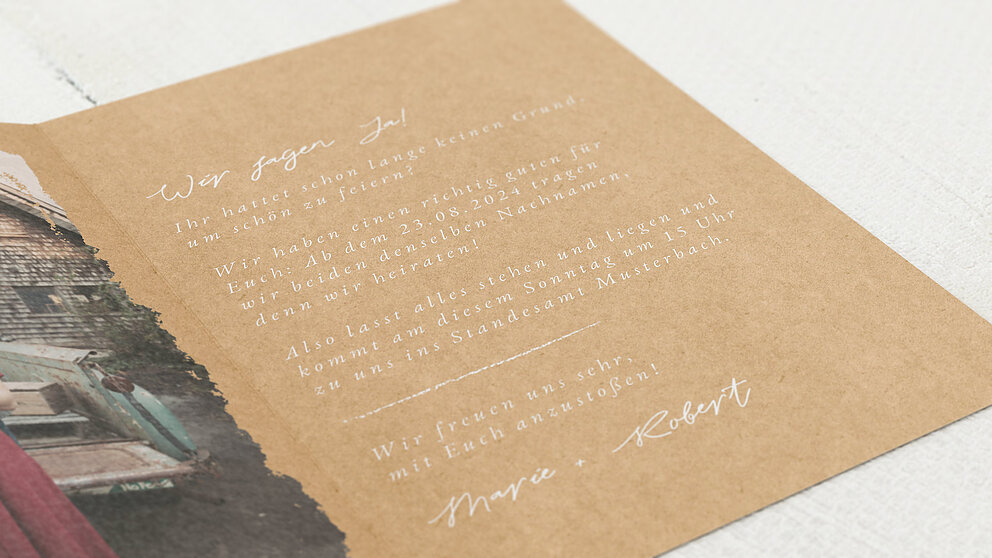 Wir sagen Ja!
Ihr hattet schon lange keinen Grund,
um schön zu feiern?
Wir haben einen richtig guten für
Euch: Ab dem 23.08.2024 tragen
wir beiden denselben Nachnamen,
denn wir heiraten!
Also lasst alles stehen und liegen und
kommt am diesem Sonntag um 15 Uhr
zu uns ins Standesamt Musterbach.
Wir freuen uns sehr,
mit Euch anzustoßen!
Marie + Robert